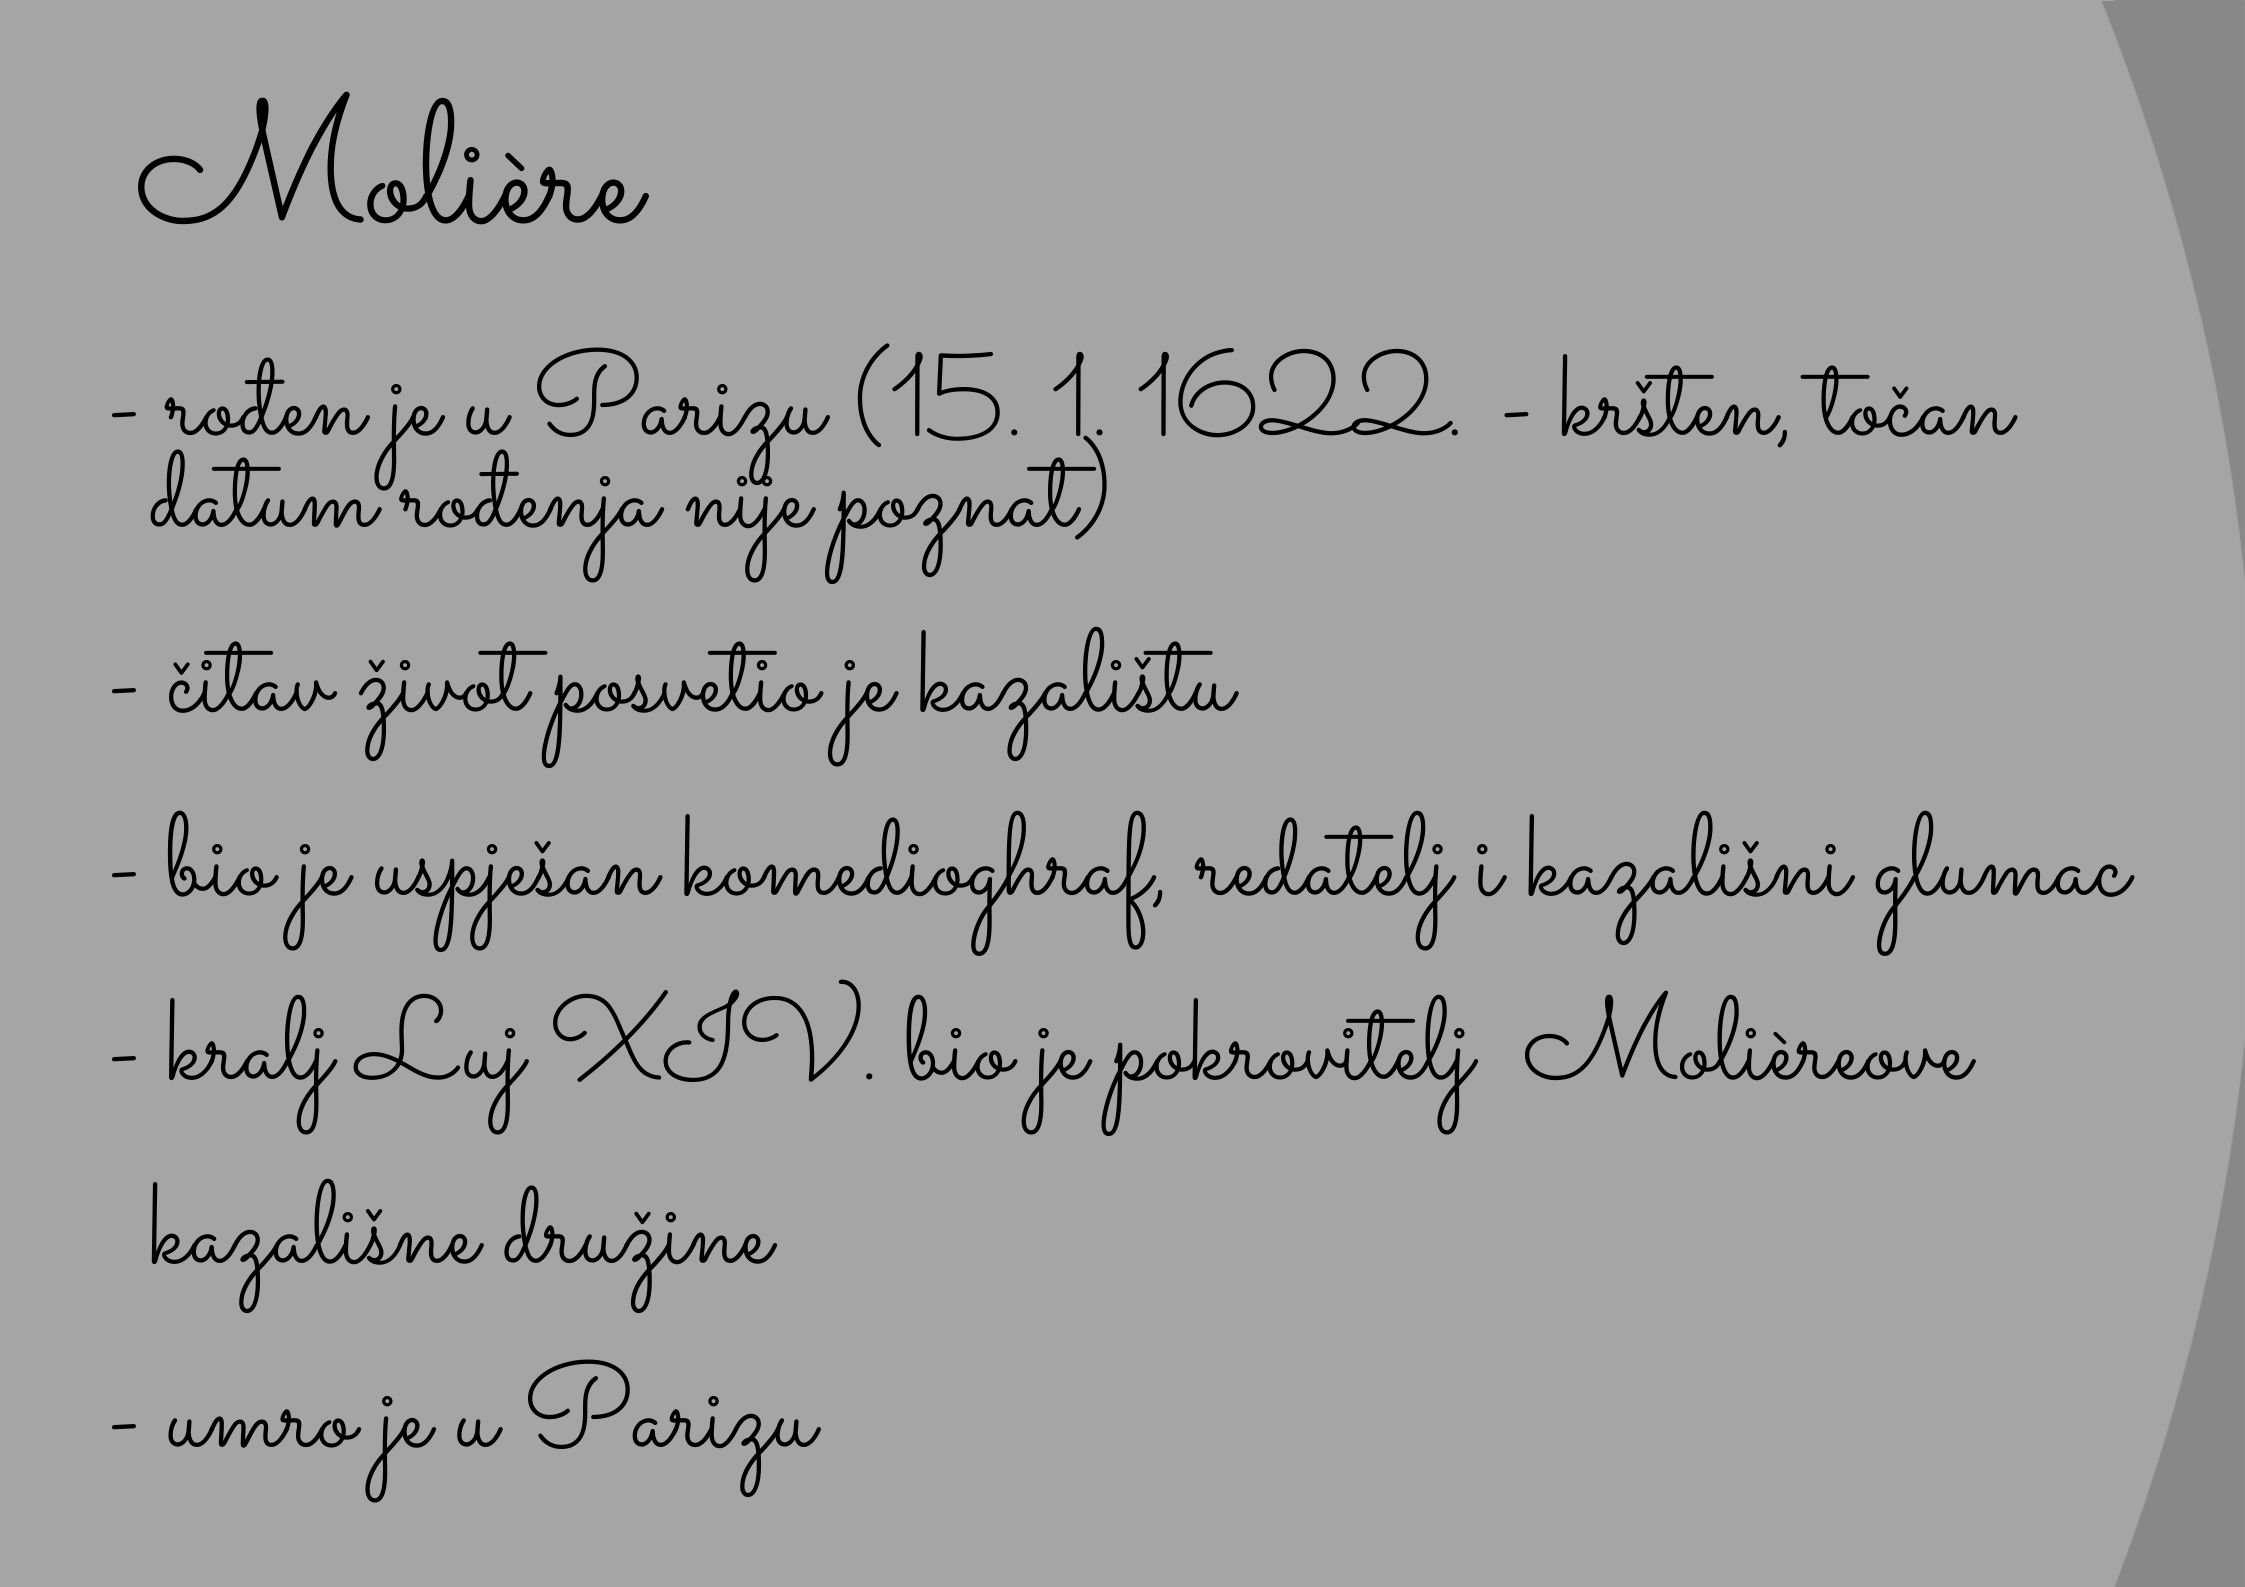 Molière
- rođen je u Parizu (15. 1. 1622. - kršten, točan
datum rođenja nije poznat)
- čitav život posvetio je kazalištu
- bio je uspješan komediograf, redatelj i kazališni glumac
- kralj Luj XIV. bio je pokrovitelj Molièreove
kazališne družine
- umro je u Parizu